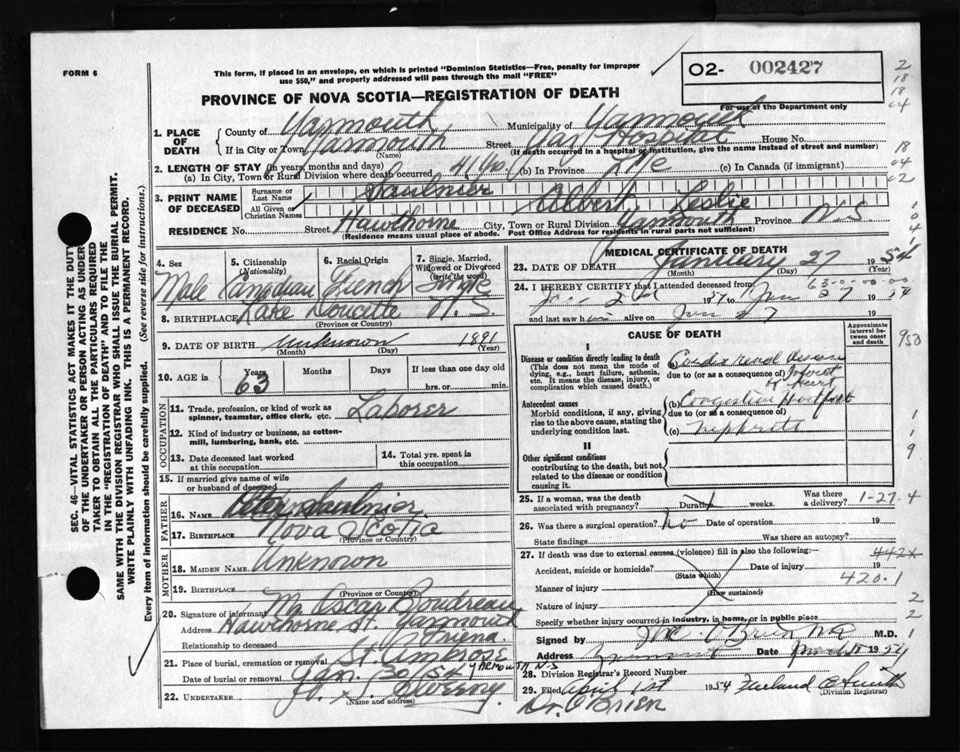 FORM 6
This form, if placed in an envelope, on which is printed "Dominion Statistics—Free, penalty for improper
use $50," and properly addressed will pass through the mail "FREE"
O2- 002427
For use of the Department only
PROVINCE OF NOVA SCOTIA—REGISTRATION OF DEATH
1. PLACE OF DEATH
County of Yarmouth Municipality of Yarmouth
If in City or Town Yarmouth Street Hospital House No.
(Name) (If death occurred in a hospital or institution, give the name instead of street and number)
2. LENGTH OF STAY (in years, months and days)
(a) In City, Town or Rural Division where death occurred 41 yrs. (b) In Province Life (c) In Canada (if immigrant)
3. PRINT NAME OF DECEASED
Surname or Last Name Saulnier
All Given or Christian Names Albert Leslie
RESIDENCE No. Street Hawthorne City, Town or Rural Division Yarmouth Province N.S.
(Residence means usual place of abode. Post Office Address for residents in rural parts not sufficient)
4. Sex Male
5. Citizenship (Nationality) Canadian
6. Racial Origin French
7. Single, Married, Widowed or Divorced (write the word) Single
8. BIRTHPLACE Lake Doucette N.S.
(Province or Country)
9. DATE OF BIRTH Unknown 1891
(Month) (Day) (Year)
10. AGE in Years 63 Months Days If less than one day old
hrs. or min.
OCCUPATION
11. Trade, profession, or kind of work as spinner, teamster, office clerk, etc. Laborer
12. Kind of industry or business, as cotton-mill, lumbering, bank, etc.
13. Date deceased last worked at this occupation
14. Total yrs. spent in this occupation
15. If married give name of wife or husband of deceased
FATHER
16. NAME Peter Saulnier
17. BIRTHPLACE Nova Scotia
(Province or Country)
MOTHER
18. MAIDEN NAME Unknown
19. BIRTHPLACE
(Province or Country)
20. Signature of informant Mr Oscar Boudreau
Address Hawthorne St. Yarmouth
Relationship to deceased
21. Place of burial, cremation or removal St. Ambrose
Date of burial or removal Jan. 30/54 YARMOUTH N.S
22. UNDERTAKER Sweeny
(Name and address)
MEDICAL CERTIFICATE OF DEATH
23. DATE OF DEATH January 27 1954
(Month) (Day) (Year)
63-0-00-00
24. I HEREBY CERTIFY that I attended deceased from
Jan 2nd 1954 to Jan 27 1954
and last saw him alive on Jan 27 19
CAUSE OF DEATH
Approximate interval between onset and death
I
Disease or condition directly leading to death
(This does not mean the mode of dying, e.g., heart failure, asthenia, etc. It means the disease, injury, or complication which caused death.)
(a) Cardio renal disease
due to (or as a consequence of) Infarct of heart
Antecedent causes
Morbid conditions, if any, giving rise to the above cause, stating the underlying condition last.
(b) Congestive
due to (or as a consequence of)
(c) Nephritis
II
Other significant conditions
contributing to the death, but not related to the disease or condition causing it.
25. If a woman, was the death associated with pregnancy? Duration weeks. Was there a delivery? 1-27-4
26. Was there a surgical operation? no Date of operation 19
State findings Was there an autopsy?
27. If death was due to external causes (violence) fill in also the following: 442x
Accident, suicide or homicide? Date of injury 19
(State which) 420.1
Manner of injury
(How sustained)
Nature of injury
Specify whether injury occurred in industry, in home, or in public place
Signed by O'Brien M.D.
Address Yarmouth Date 1954
28. Division Registrar's Record Number
29. Filed April 1st 1954 Smith
(Division Registrar)
Dr. O'BRIEN
SEC. 46—VITAL STATISTICS ACT MAKES IT THE DUTY
OF THE UNDERTAKER OR PERSON ACTING AS UNDER-
TAKER TO OBTAIN ALL THE PARTICULARS REQUIRED
IN THE "REGISTRATION OF DEATH" AND TO FILE THE
SAME WITH THE DIVISION REGISTRAR WHO SHALL ISSUE THE BURIAL PERMIT.
WRITE PLAINLY WITH UNFADING INK. THIS IS A PERMANENT RECORD.
Every item of information should be carefully supplied. (See reverse side for instructions.)
2
18
18
04
18
04
02
1
0
4
1
950
1
9
2
2
1